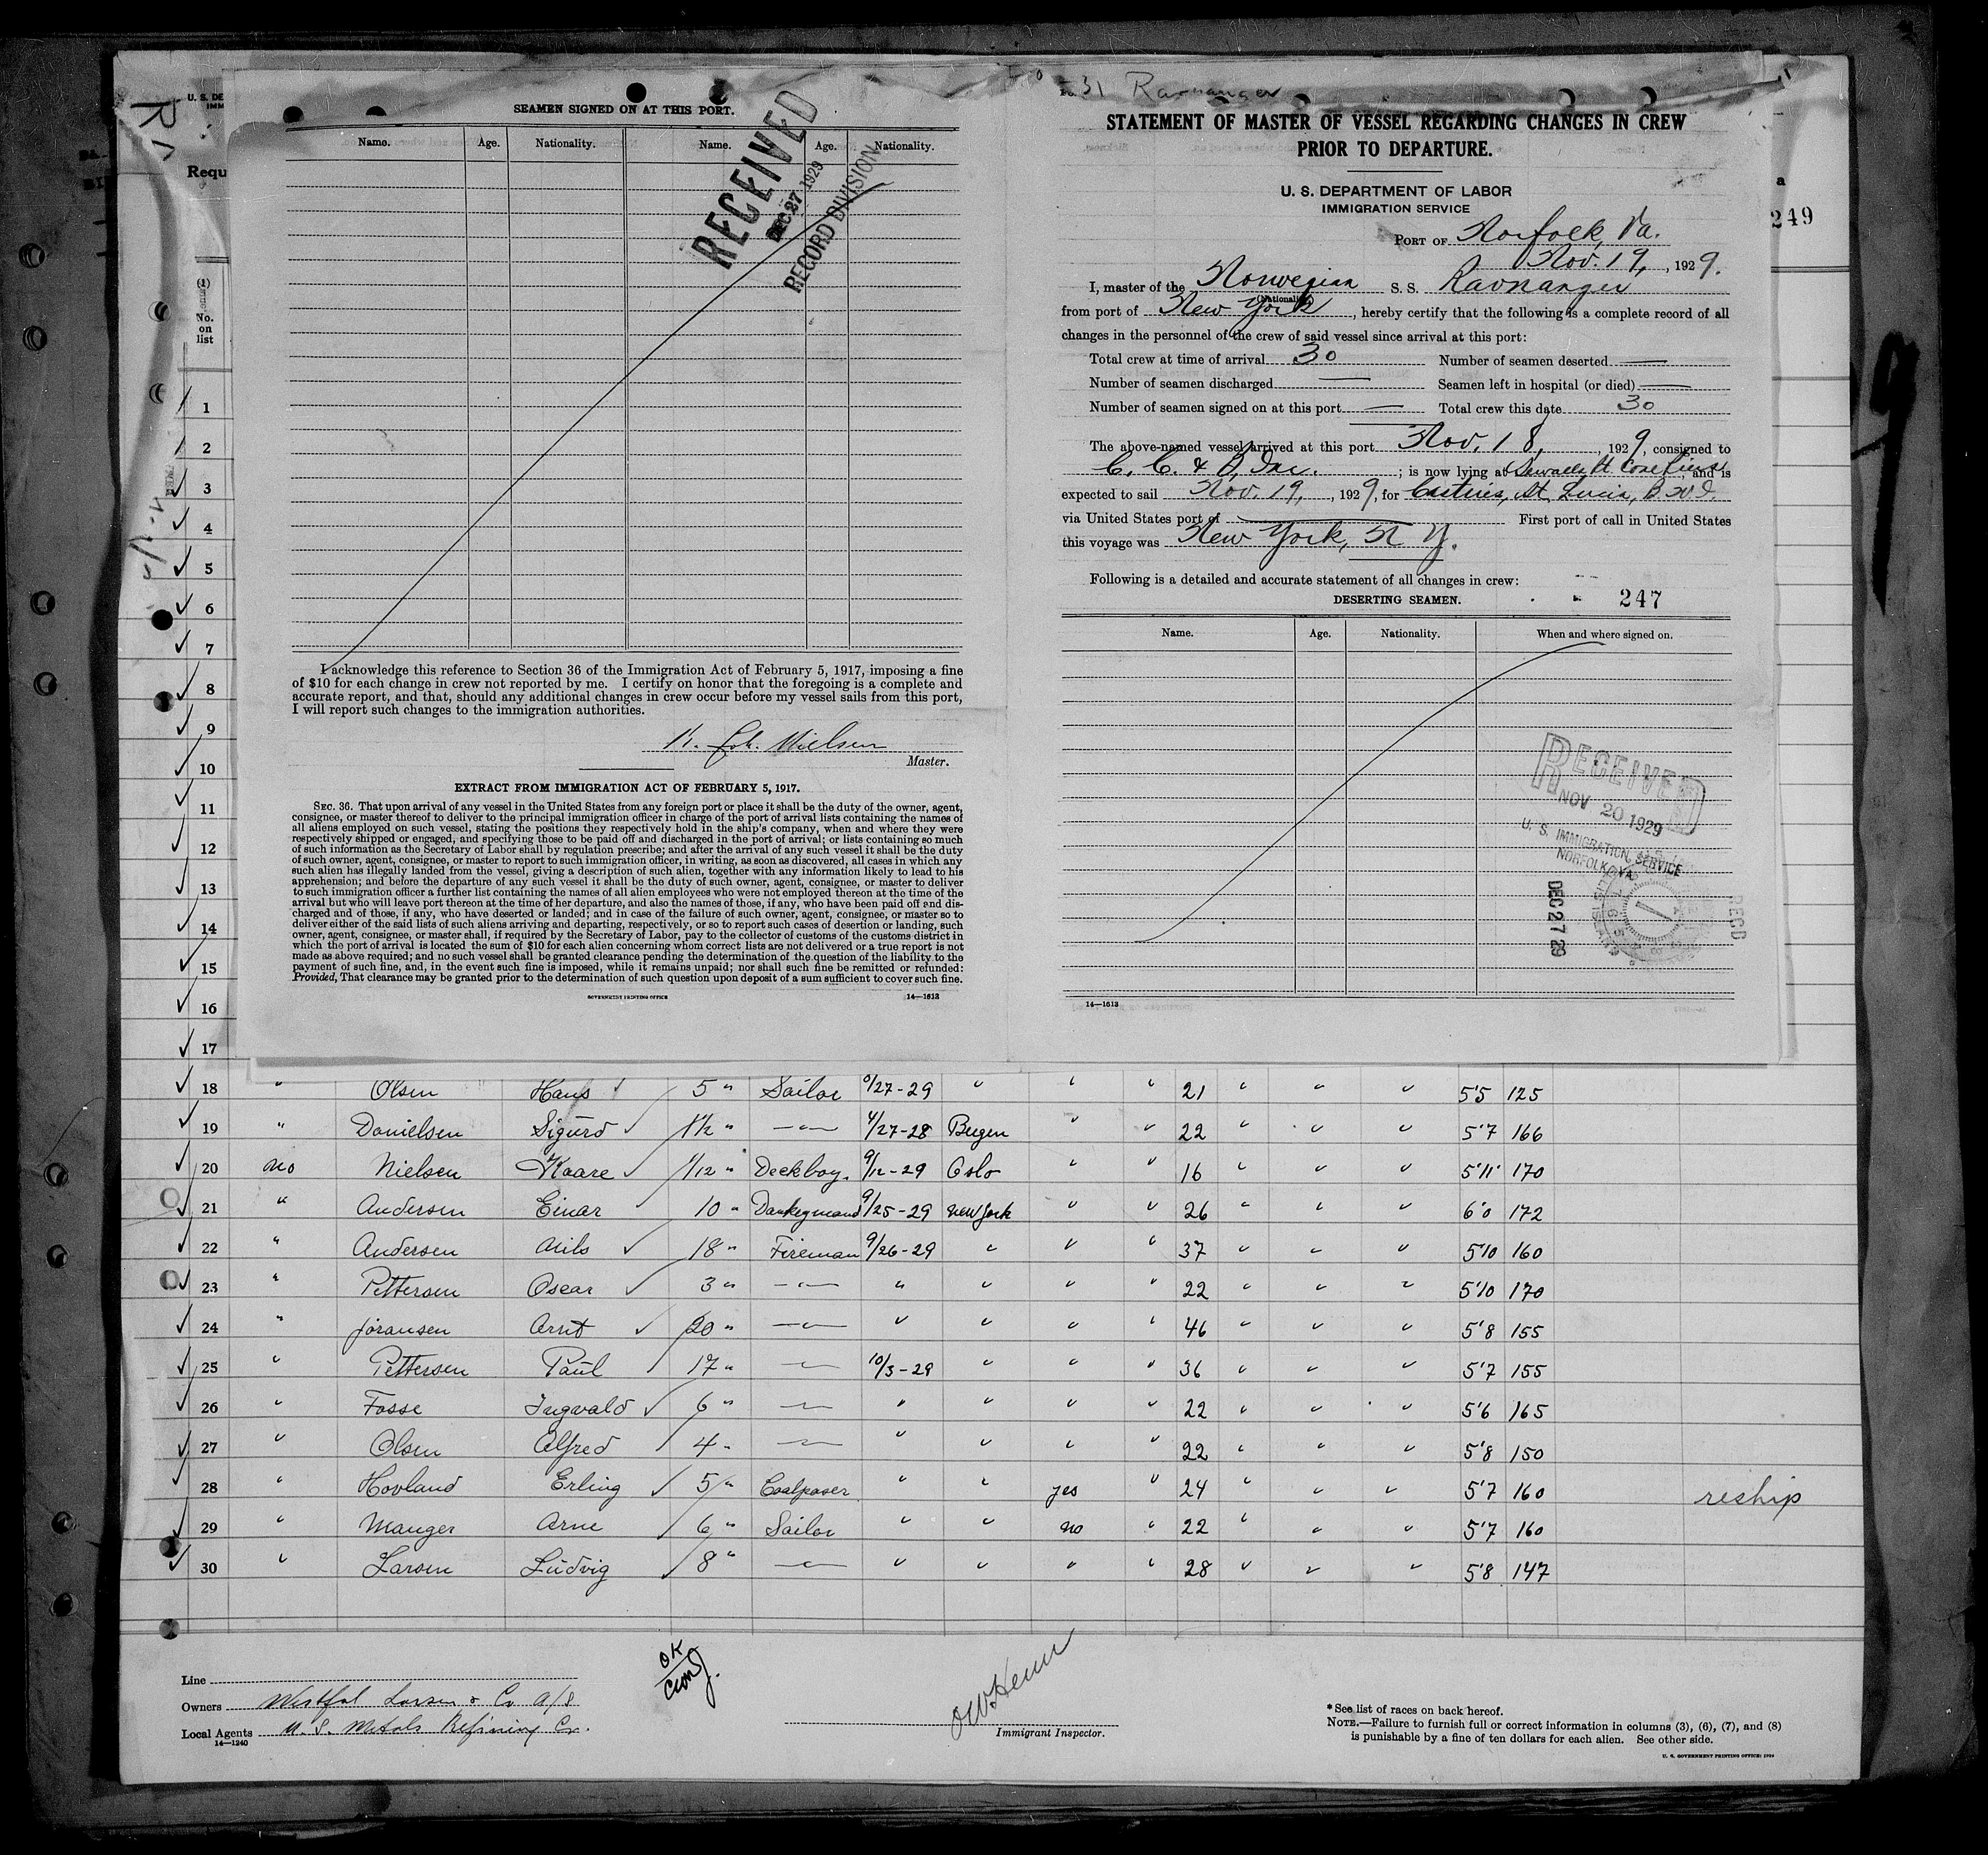 31 Ravnanger
SEAMEN SIGNED ON AT THIS PORT.
Name. Age. Nationality. Name. Age. Nationality.
RECEIVED
DEC 27 1929
RECORD DIVISION
I acknowledge this reference to Section 36 of the Immigration Act of February 5, 1917, imposing a fine
of $10 for each change in crew not reported by me. I certify on honor that the foregoing is a complete and
accurate report, and that, should any additional changes in crew occur before my vessel sails from this port,
I will report such changes to the immigration authorities.
Nielsen
Master.
EXTRACT FROM IMMIGRATION ACT OF FEBRUARY 5, 1917.
SEC. 36. That upon arrival of any vessel in the United States from any foreign port or place it shall be the duty of the owner, agent,
consignee, or master thereof to deliver to the principal immigration officer in charge of the port of arrival lists containing the names of
all aliens employed on such vessel, stating the positions they respectively hold in the ship's company, when and where they were
respectively shipped or engaged, and specifying those to be paid off and discharged in the port of arrival; or lists containing so much
of such information as the Secretary of Labor shall by regulation prescribe; and after the arrival of any such vessel it shall be the duty
of such owner, agent, consignee, or master to report to such immigration officer, in writing, as soon as discovered, all cases in which any
such alien has illegally landed from the vessel, giving a description of such alien, together with any information likely to lead to his
apprehension; and before the departure of any such vessel it shall be the duty of such owner, agent, consignee, or master to deliver
to such immigration officer a further list containing the names of all alien employees who were not employed thereon at the time of the
arrival but who will leave port thereon at the time of her departure, and also the names of those, if any, who have been paid off and dis-
charged and of those, if any, who have deserted or landed; and in case of the failure of such owner, agent, consignee, or master so to
deliver either of the said lists of such aliens arriving and departing, respectively, or so to report such cases of desertion or landing, such
owner, agent, consignee, or master shall, if required by the Secretary of Labor, pay to the collector of customs of the customs district in
which the port of arrival is located the sum of $10 for each alien concerning whom correct lists are not delivered or a true report is not
made as above required; and no such vessel shall be granted clearance pending the determination of the question of the liability to the
payment of such fine, and, in the event such fine is imposed, while it remains unpaid; nor shall such fine be remitted or refunded:
Provided, That clearance may be granted prior to the determination of such question upon deposit of a sum sufficient to cover such fine.
GOVERNMENT PRINTING OFFICE 14—1613
STATEMENT OF MASTER OF VESSEL REGARDING CHANGES IN CREW
PRIOR TO DEPARTURE.
U. S. DEPARTMENT OF LABOR
IMMIGRATION SERVICE
PORT OF Norfolk, Va.
Nov. 19, , 1929.
I, master of the Norwegian S. S. Ravnanger
(Nationality)
from port of New York, hereby certify that the following is a complete record of all
changes in the personnel of the crew of said vessel since arrival at this port:
Total crew at time of arrival 30 Number of seamen deserted —
Number of seamen discharged — Seamen left in hospital (or died) —
Number of seamen signed on at this port — Total crew this date 30
The above-named vessel arrived at this port Nov. 18, , 1929, consigned to
C. C. & Inc. ; is now lying at Sewalls Pt. , and is
expected to sail Nov. 19, , 1929, for Castries, St. Lucia, B.W.I.
via United States port of — First port of call in United States
this voyage was New York, N Y.
Following is a detailed and accurate statement of all changes in crew:
DESERTING SEAMEN. 247
Name. Age. Nationality. When and where signed on.
RECEIVED
NOV 20 1929
U. S. IMMIGRATION SERVICE
NORFOLK, VA.
DEC 27 29
REC'D
14—1613
U. S. DE
IMM
Requ
249
(1)
No.
on
list
1
2
3
4
5
6
7
8
9
10
11
12
13
14
15
16
17
18 " Olsen Hans 5 " Sailor 9/27-29 " " " 21 " " " 5'5 125
19 " Danielsen Sigurd 1½ " —"— 4/27-28 Bergen " " 22 " " " 5'7 166
20 no Nielsen Kaare 1/12 " Deckboy. 9/12-29 Oslo " " 16 " " " 5'11" 170
21 " Andersen Einar 10 " Donkeymand 9/25-29 New York " " 26 " " " 6'0 172
22 " Andersen Nils 18 " Fireman 9/26-29 " " " 37 " " " 5'10 160
23 " Pettersen Oscar 3 " —"— " " " " 22 " " " 5'10 170
24 " Jöransen Arnt 20 " —"— " " " " 46 " " " 5'8 155
25 " Pettersen Paul 17 " —"— 10/3-29 " " " 36 " " " 5'7 155
26 " Fosse Ingvald 6 " —"— " " " " 22 " " " 5'6 165
27 " Olsen Alfred 4 " —"— " " " " 22 " " " 5'8 150
28 " Hovland Erling 5 " Coalpaser " " yes " 24 " " " 5'7 160 reship
29 " Manger Arne 6 " Sailor " " no " 22 " " " 5'7 160
30 " Larsen Ludvig 8 " —"— " " " " 28 " " " 5'8 147
Line
Owners Westfal Larsen & Co A/S
Local Agents U. S. Metals Refining Co.
14—1240
OK
Immigrant Inspector.
* See list of races on back hereof.
NOTE.—Failure to furnish full or correct information in columns (3), (6), (7), and (8)
is punishable by a fine of ten dollars for each alien. See other side.
U. S. GOVERNMENT PRINTING OFFICE: 1929